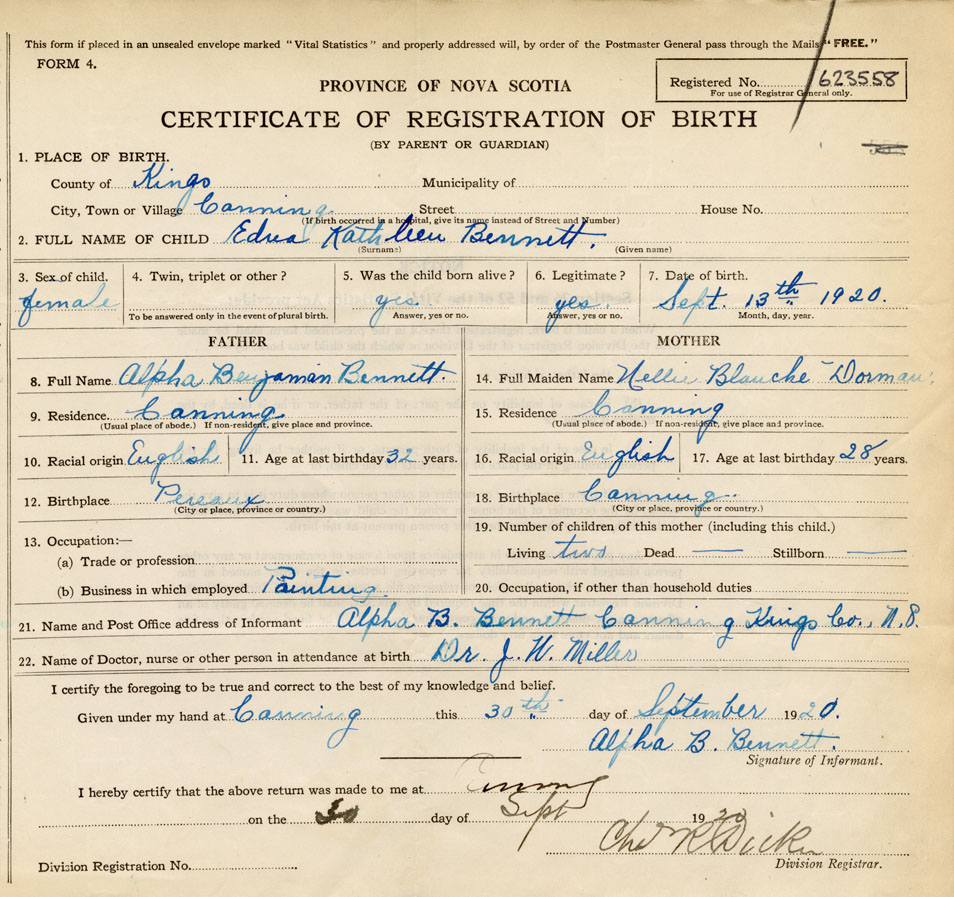 This form if placed in an unsealed envelope marked "Vital Statistics" and properly addressed will, by order of the Postmaster General pass through the Mails "FREE."
FORM 4.
PROVINCE OF NOVA SCOTIA
Registered No. 623558
For use of Registrar General only.
CERTIFICATE OF REGISTRATION OF BIRTH
(BY PARENT OR GUARDIAN)
1. PLACE OF BIRTH.
County of Kings Municipality of
City, Town or Village Canning Street House No.
(If birth occurred in a hospital, give its name instead of Street and Number)
2. FULL NAME OF CHILD Edna Kathleen Bennett.
(Surname) (Given name)
3. Sex of child. 4. Twin, triplet or other? 5. Was the child born alive? 6. Legitimate? 7. Date of birth.
female yes. yes. Sept. 13th 1920.
To be answered only in the event of plural birth. Answer, yes or no. Answer, yes or no. Month, day, year.
FATHER MOTHER
8. Full Name Alpha Benjaman Bennett. 14. Full Maiden Name Nellie Blanche Dorman
9. Residence Canning 15. Residence Canning
(Usual place of abode.) If non-resident, give place and province. (Usual place of abode.) If non-resident, give place and province.
10. Racial origin English 11. Age at last birthday 32 years. 16. Racial origin English 17. Age at last birthday 28 years.
12. Birthplace Pereaux 18. Birthplace Canning
(City or place, province or country.) (City or place, province or country.)
19. Number of children of this mother (including this child.)
13. Occupation:—
Living two Dead — Stillborn —
(a) Trade or profession
(b) Business in which employed Painting 20. Occupation, if other than household duties
21. Name and Post Office address of Informant Alpha B. Bennett Canning Kings Co., N.S.
22. Name of Doctor, nurse or other person in attendance at birth Dr. J. W. Miller
I certify the foregoing to be true and correct to the best of my knowledge and belief.
Given under my hand at Canning this 30th day of September 1920.
Alpha B. Bennett.
Signature of Informant.
I hereby certify that the above return was made to me at Canning
on the 30 day of Sept 1920
Dickie
Division Registration No. Division Registrar.